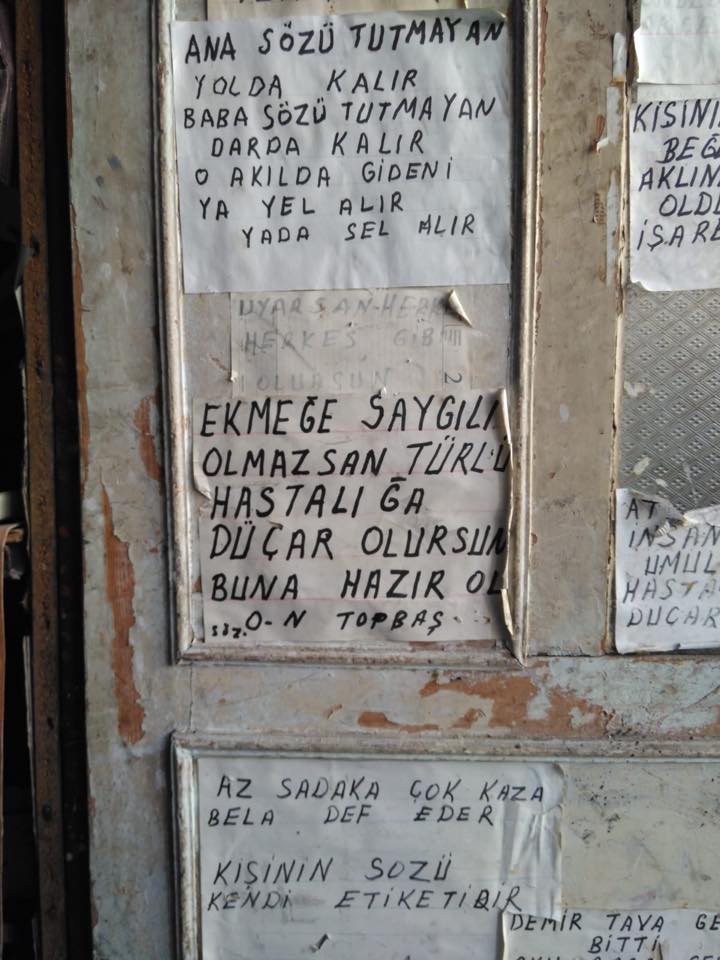 ANA SÖZÜ TUTMAYAN
YOLDA KALIR
BABA SÖZÜ TUTMAYAN
DARDA KALIR
O AKILDA GİDENİ
YA YEL ALIR
YADA SEL ALIR
UYARSAN HERKE
HERKES GİB
OLURSUN
2
EKMEĞE SAYGILI
OLMAZSAN TÜRLÜ
HASTALIĞA
DÜÇAR OLURSUN
BUNA HAZIR OL
SÖZ. O-N TOPBAŞ
AZ SADAKA ÇOK KAZA
BELA DEF EDER
KİŞİNİN SOZÜ
KENDİ ETİKETİDİR
DEMİR TAVA GE
BİTTİ
KISINI
BEĞ
AKLIN
OLDU
İŞARE
AT
INSAN
UMUL
HASTA
DUÇAR